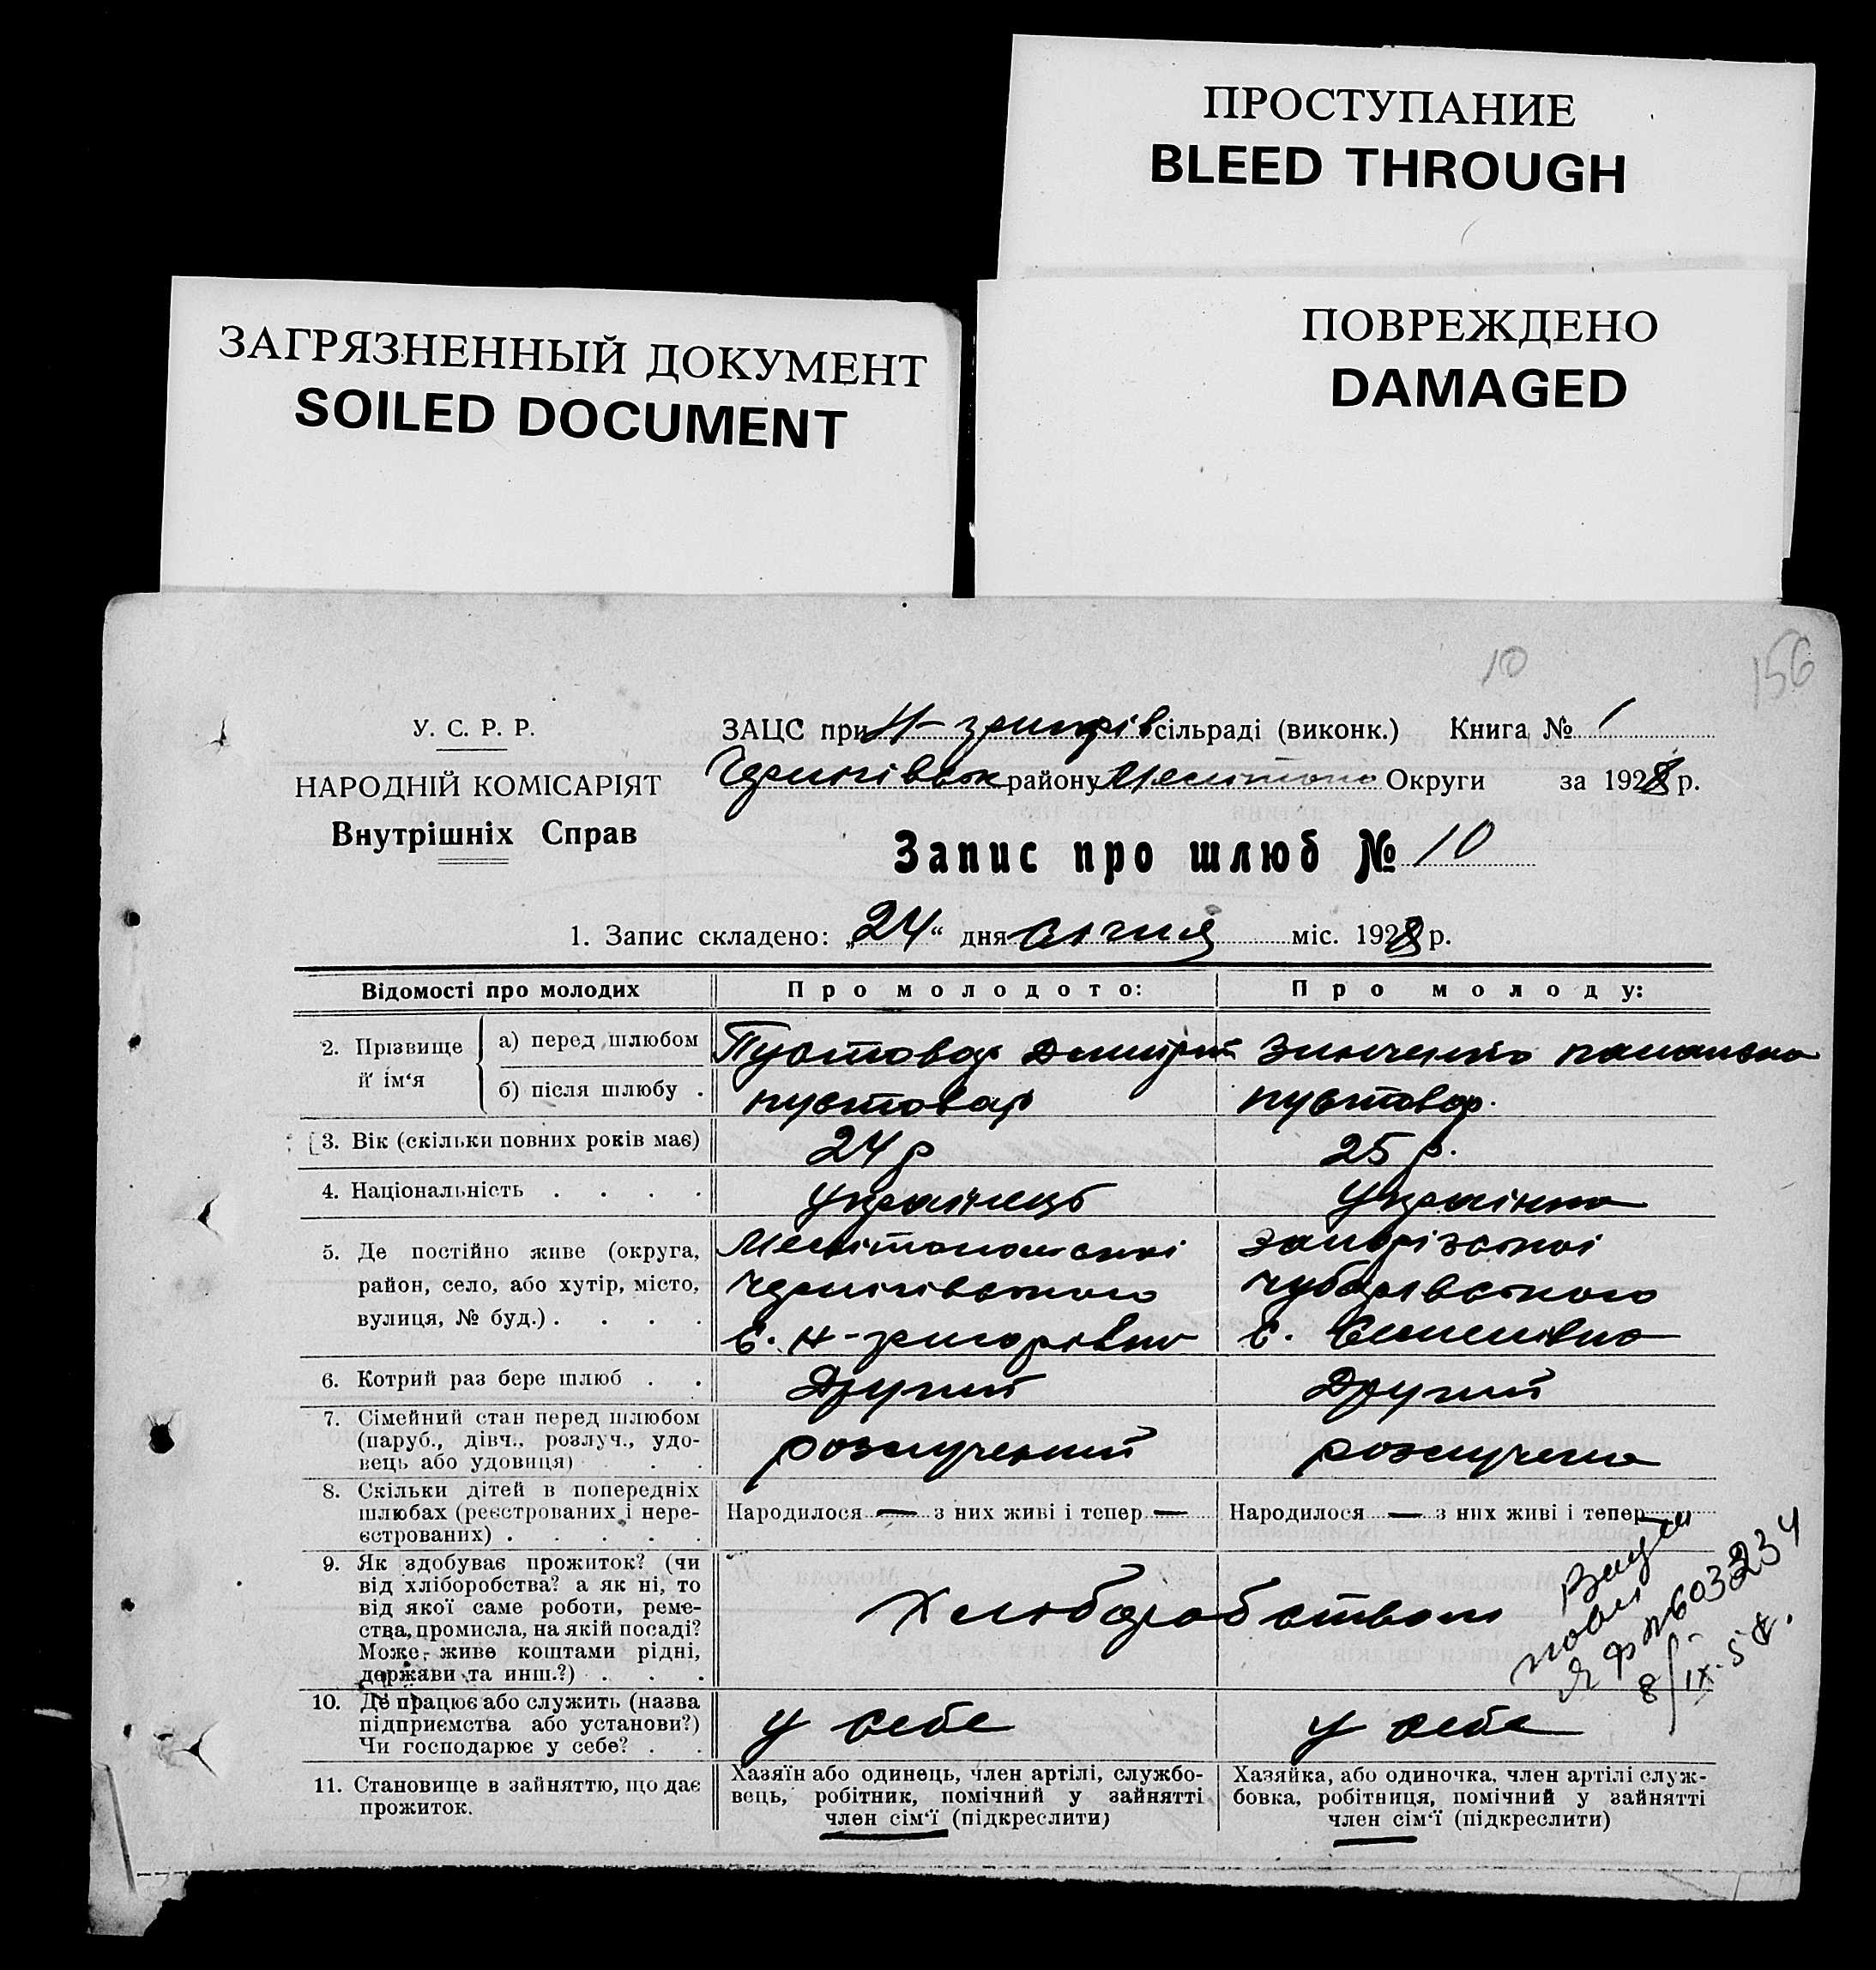 ПРОСТУПАНИЕ
BLEED THROUGH
ПОВРЕЖДЕНО
DAMAGED
ЗАГРЯЗНЕННЫЙ ДОКУМЕНТ
SOILED DOCUMENT
10
156
У. С. Р. Р.
НАРОДНІЙ КОМІСАРІЯТ
Внутрішніх Справ
ЗАЦС при сільраді (виконк.) Книга № 1
району Округи за 1928 р.
Запис про шлюб № 10
1. Запис складено: „24“ дня січня міс. 1928 р.
Відомості про молодих
Про молодого:
Про молоду:
2. Прізвище й ім‘я
а) перед шлюбом
Пустовар Дмитрій
Зинченко
б) після шлюбу .
пустовар
пустовар.
3. Вік (скільки повних років має)
24 р
25 р.
4. Національність . . . .
Українець
Українка
5. Де постійно живе (округа,
район, село, або хутір, місто,
вулиця, № буд.) . . . .
Мелітопольскої
Чернігівського
с. Н-григорівка
запорізької
чубарівського
с. Семенівка
6. Котрий раз бере шлюб . .
Другий
Другий
7. Сімейний стан перед шлюбом
(паруб., дівч., розлуч., удо-
вець або удовиця) . . .
розлучений
розлучена
8. Скільки дітей в попередніх
шлюбах (реєстрованих і нере-
єстрованих) . . . . .
Народилося — з них живі і тепер —
Народилося — з них живі і тепер
9. Як здобуває прожиток? (чи
від хліборобства? а як ні, то
від якої саме роботи, реме-
ства, промисла, на якій посаді?
Може, живе коштами рідні,
держави та инш.?) . . .
Хлюборобством
№603234
8/IX-5
10. Де працює або служить (назва
підприємства або установи?)
Чи господарює у себе? . .
у себе
у себе
11. Становище в зайняттю, що дає
прожиток.
Хазяїн або одинець, член артілі, службо-
вець, робітник, помічний у зайнятті
член сім‘ї (підкреслити)
Хазяйка, або одиночка, член артілі служ-
бовка, робітниця, помічний у зайнятті
член сім‘ї (підкреслити)